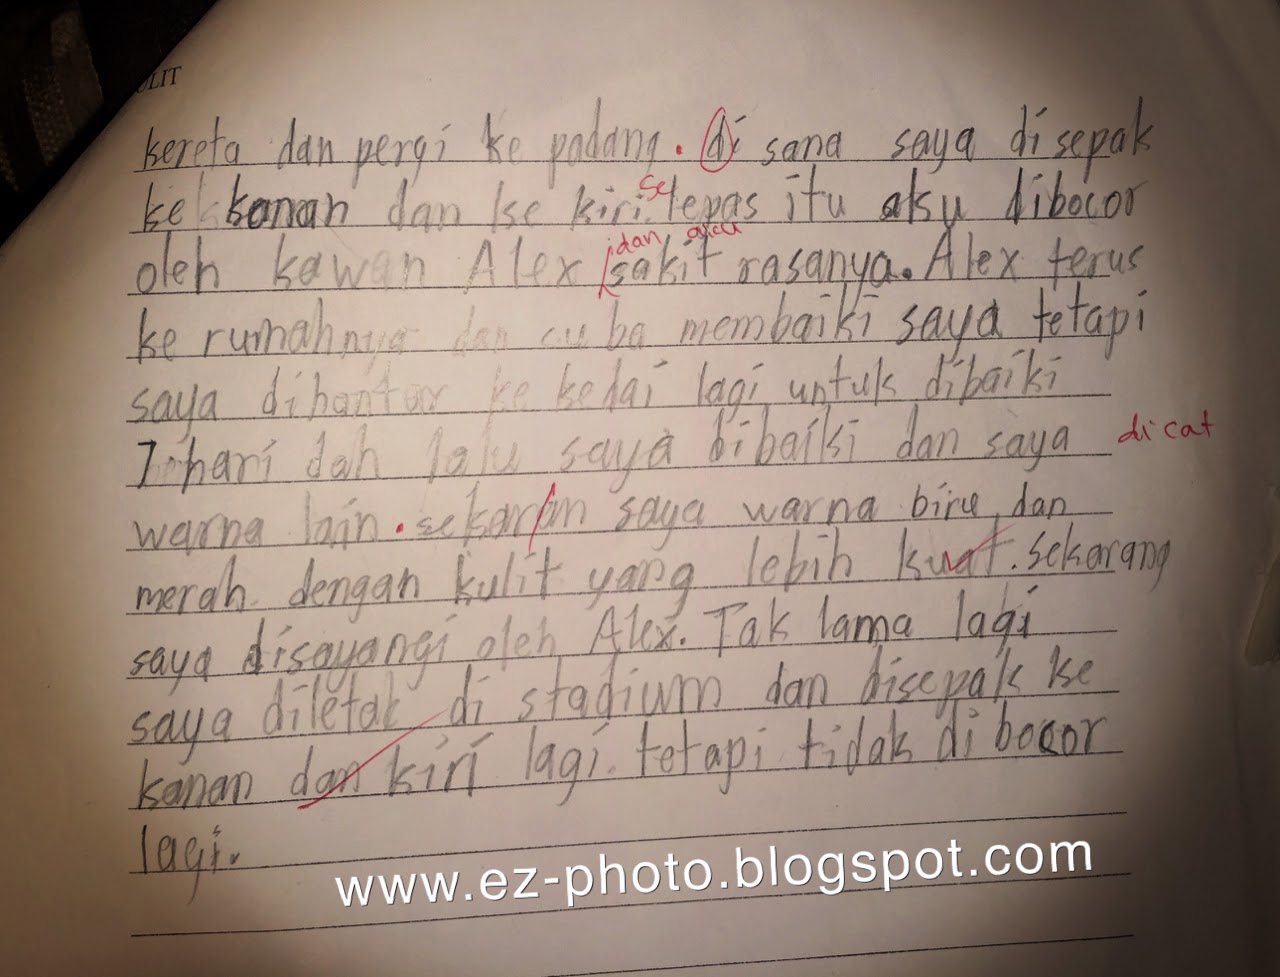 ULIT
kereta dan pergi ke padang. di sana saya disepak
se
ke kanan dan ke kiri. lepas itu aku dibocor
dan aku
oleh kawan Alex sakit rasanya. Alex terus
ke rumahnya dan cuba membaiki saya tetapi
saya dihantar ke kedai lagi untuk dibaiki
7 hari dah lalu saya dibaiki dan saya dicat
warna lain. sekaran saya warna biru dan
merah dengan kulit yang lebih kuat. sekarang
saya disayangi oleh Alex. Tak lama lagi
saya diletak di stadium dan disepak ke
kanan dan kiri lagi. tetapi tidak di bocor
lagi.
www.ez-photo.blogspot.com